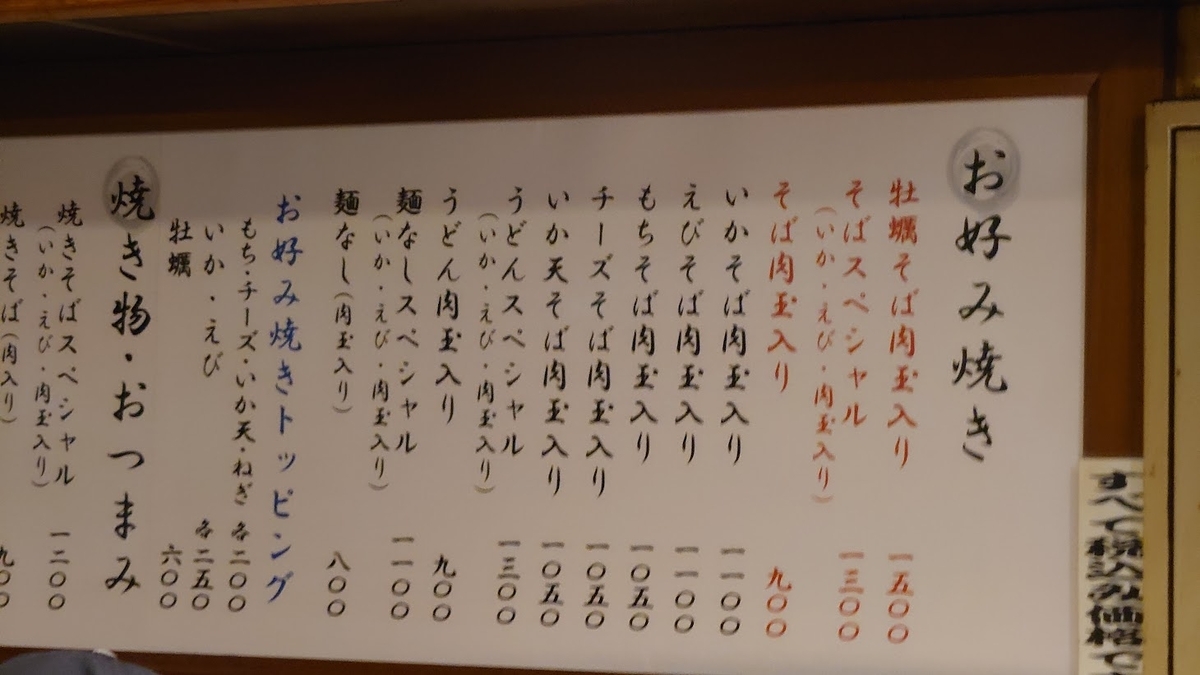 お好み焼き
牡蠣そば肉玉入り 一五〇〇
そばスペシャル 一三〇〇
(いか・えび・肉玉入り)
そば肉玉入り 九〇〇
いかそば肉玉入り 一一〇〇
えびそば肉玉入り 一一〇〇
もちそば肉玉入り 一〇五〇
チーズそば肉玉入り 一〇五〇
いか天そば肉玉入り 一〇五〇
うどんスペシャル 一三〇〇
(いか・えび・肉玉入り)
うどん肉玉入り 九〇〇
麺なしスペシャル 一一〇〇
(いか・えび・肉玉入り)
麺なし(肉玉入り) 八〇〇
お好み焼きトッピング
もち・チーズ・いか天・ねぎ 各二〇〇
いか・えび 各二五〇
牡蠣 六〇〇
焼き物・おつまみ
焼きそばスペシャル 一二〇〇
(いか・えび・肉玉入り)
焼きそば(肉入り) 九〇〇
すべて税込み価格で